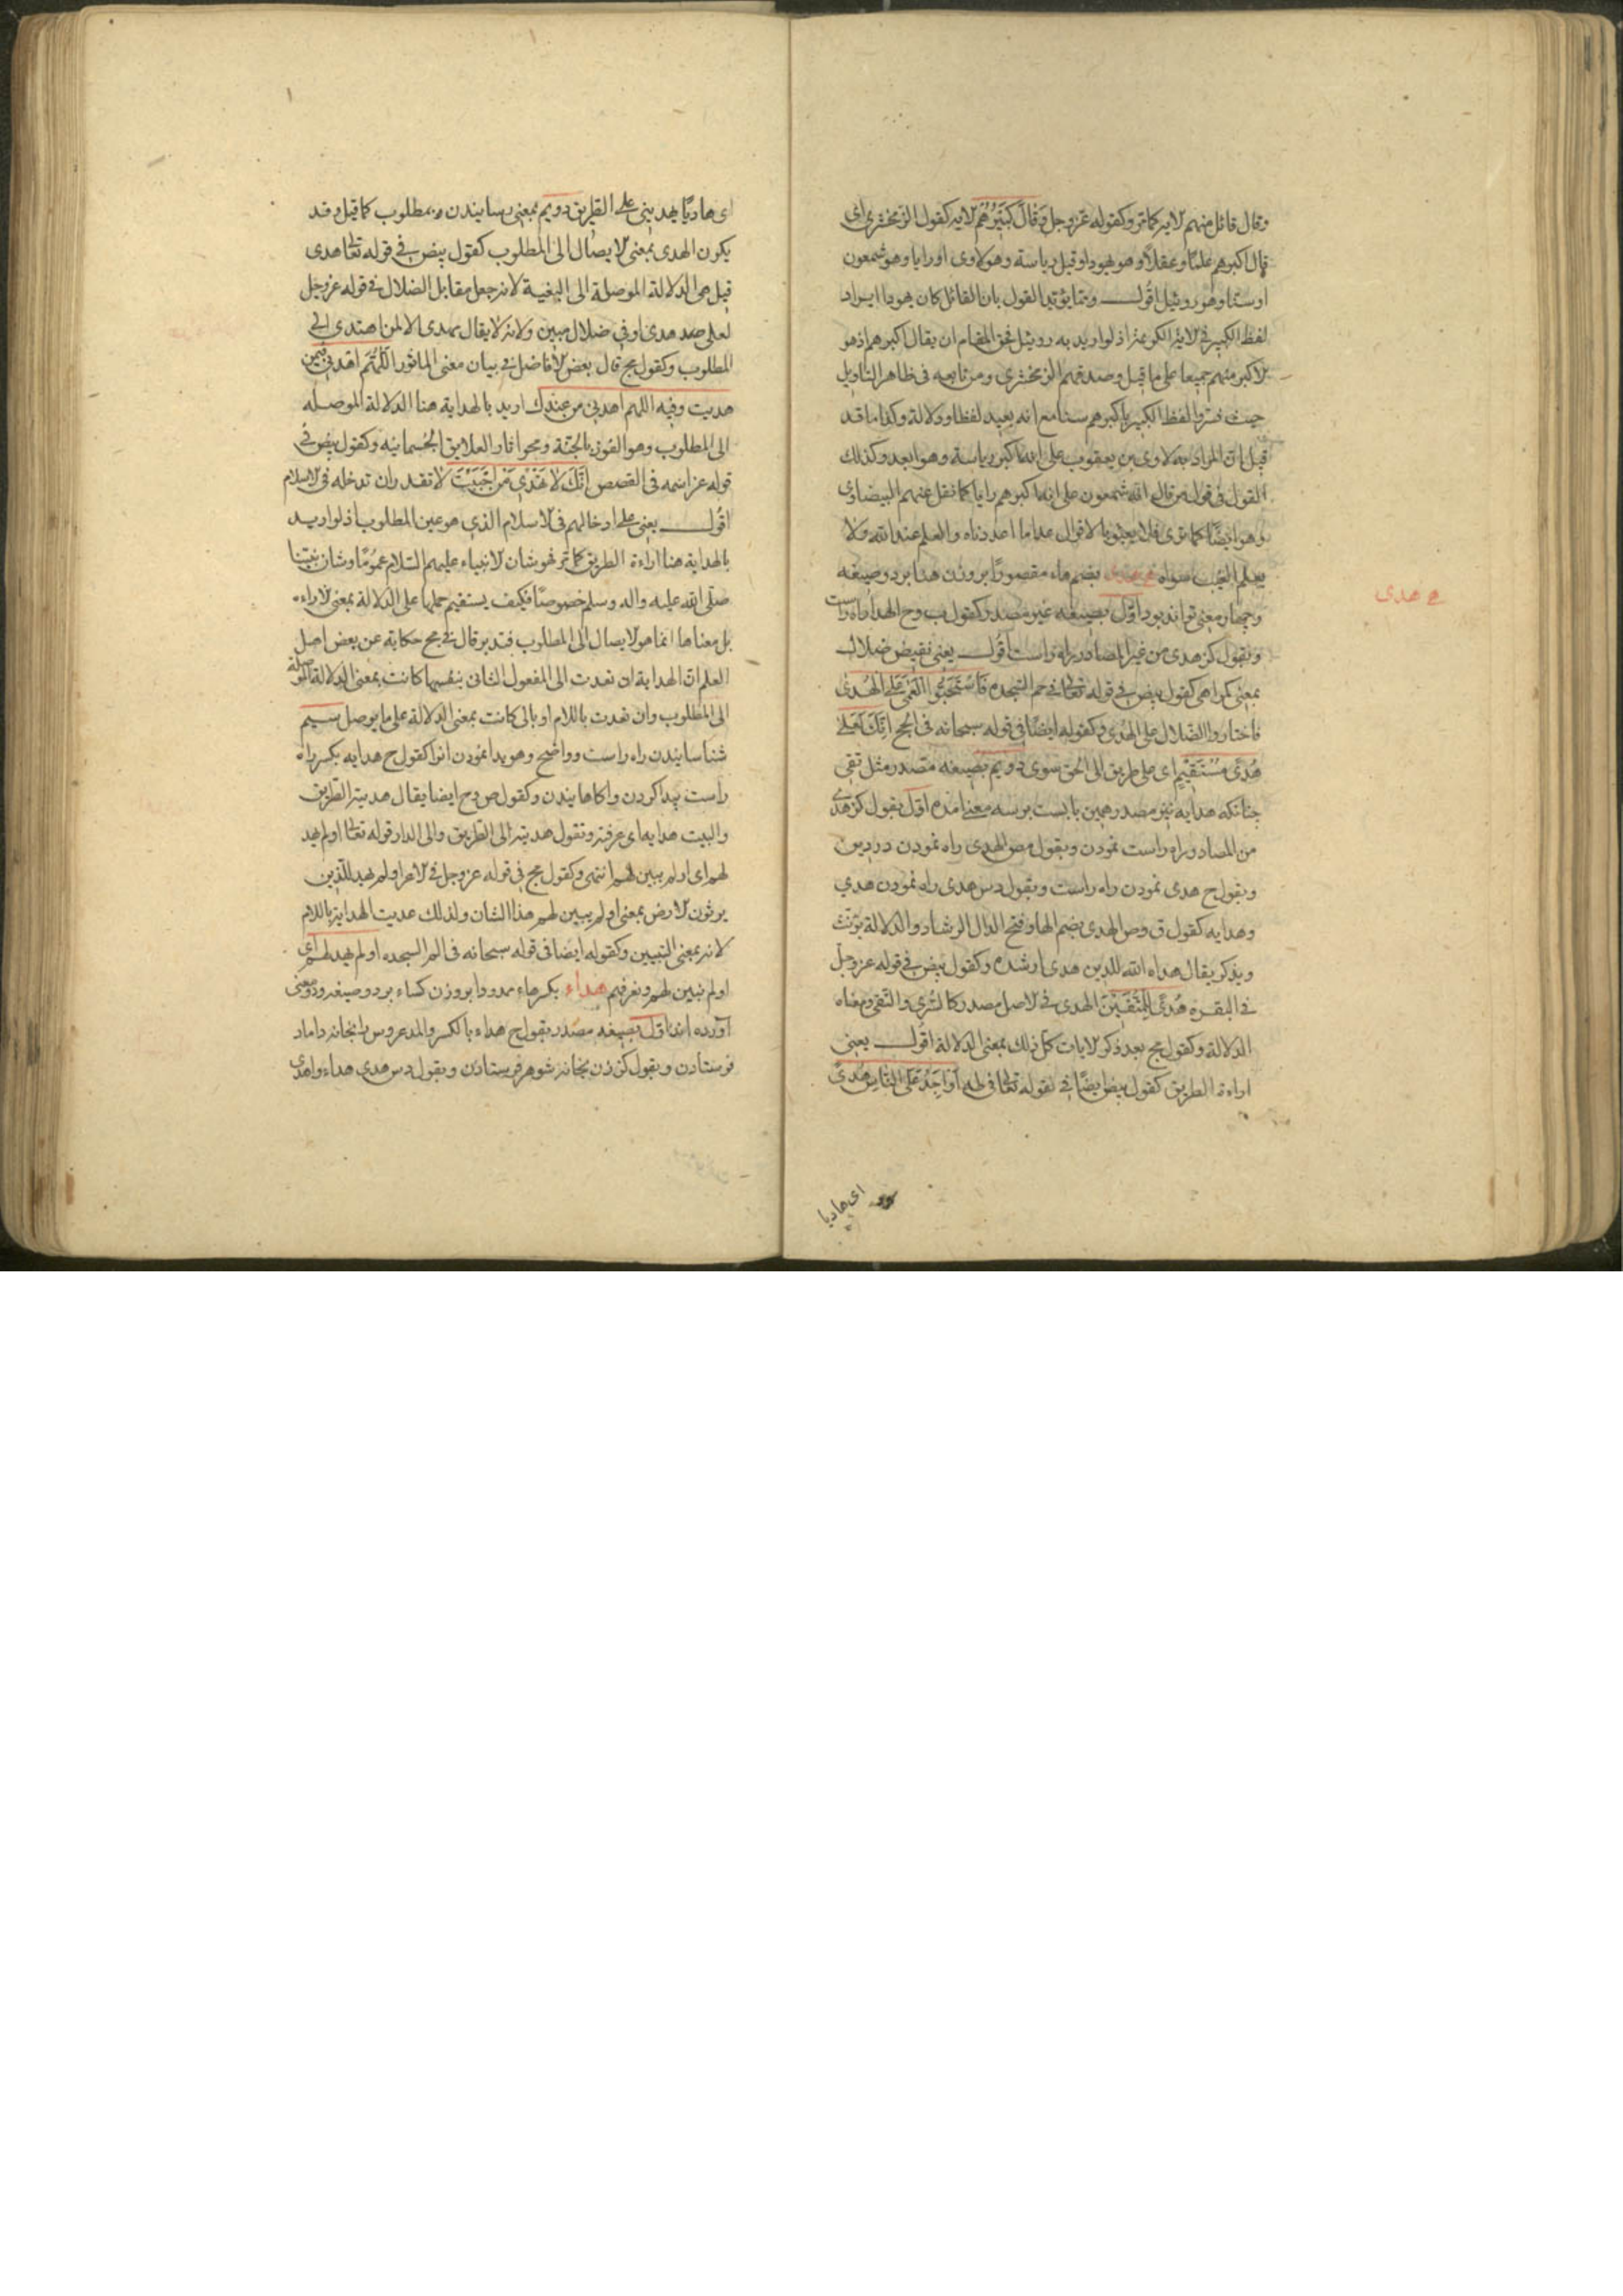 وقال قائل منهم لاية كما مر وكقوله عز وجل وَقَالَ كَبِيرُهُمْ لاية كقول الزمخشري اى
قال اكبرهم علما وعقلا وهو يهودا وقيل رياسة وهو لاوى او رايا وهو شمعون
او سنا وهو روبيل اقول ومما يؤيد القول بان القائل كان يهودا ايراد
لفظ الكبير فى لاية الكريمة اذ لو اريد به روبيل فحق المقام ان يقال اكبرهم اذ هو
لاكبر منهم جميعا على ما قيل وصدقهم الزمخشرى ومن تابعه فى ظاهر التاويل
حيث فسروا لفظ الكبير باكبرهم سنا مع انه بعيد لفظا ودلالة وكذا ما قد
قيل ان المراد به لاوى بن يعقوب على انه اكبر رياسة وهو ابعد وكذلك
القول فى قول من قال انه شمعون على انه اكبرهم رايا كما نقل عنهم البيضاوى
وهو ايضا كما ترى فلا يعبؤ بالاقوال عدا ما اعددناه والعلم عند الله ولا
يعلم الغيب سواه هدى بضم هاء مقصورا بر وزن هدا بر دو صيغه
وچهار معنى تواند بود اول بصيغه غير مصدر كقول ب وح الهدا راه راست
وبقول كز هدى من غير المصادر راه راست اقول يعنى نقيض ضلال
بمعنى كمراهى كقول بيض فى قوله تعالى فى حم السجده فَاسْتَحَبُّوا الْعَمَى عَلَى الْهُدَى
فاختاروا الضلال على الهدى وكقوله ايضا فى قوله سبحانه فى الحج اِنَّكَ لَعَلَى
هُدًى مُسْتَقِيمٍ اى على طريق الى الحق سوى دويم بصيغه مصدر مثل تقى
چنانكه هدايه نيز مصدر همين بابست بر سه معنى امده اول بقول كز هدى
من المصادر راه راست نمودن وبقول مص الهدى راه نمودن در دين
وبقول ح هدى نمودن راه راست وبقول دس هدى راه نمودن هدي
وهدايه كقول ق وص الهدى بضم الها وفتح الدال الرشاد والدلالة يؤنث
ويذكر يقال هداه الله للدين هدى ارشده وكقول بيض فى قوله عز وجل
فى البقره هُدًى لِلْمُتَّقِينَ الهدى فى لاصل مصدر كالسرى والتقى ومعناه
الدلالة وكقول مج بعد ذكر لايات كل ذلك بمعنى الدلالة اقول يعنى
اراءة الطريق كقول بيض ايضا فى قوله تعالى فى طه اَوْ اَجِدُ عَلَى النَّارِ هُدًى
اى هاديا
هدى
اى هاديا يهدينى على الطريق دويم بمعنى رسانيدن بمطلوب كما قيل وقد
يكون الهدى بمعنى لايصال الى المطلوب كقول بيض فى قوله تعالى هدى
قيل هى الدلالة الموصلة الى البغية لانه جعل مقابل الضلال فى قوله عز وجل
لعلى هدى او فى ضلال مبين ولانه لا يقال مهدى الا لمن اهتدى الى
المطلوب وكقول مج قال بعض لافاضل فى بيان معنى الماثور اَللّٰهُمَّ اهْدِنِى فِيمَنْ
هديت وفيه اللهم اهدنى من عندك اريد بالهداية هنا الدلالة الموصله
الى المطلوب وهو الفوز بالجنة ومحو اثار العلايق الجسمانيه وكقول بيض فى
قوله عز اسمه فى القصص اِنَّكَ لَا تَهْدِى مَنْ اَحْبَبْتَ لا تقدر ان تدخله فى لاسلام
اقول يعنى على ادخالهم فى لاسلام الذى هو عين المطلوب اذ لو اريد
بالهداية هنا اراءة الطريق كما مر فهو شان لانبياء عليهم السلام عموما وشان نبينا
صلى الله عليه واله وسلم خصوصا فكيف يستقيم حملها على الدلالة بمعنى لاراءه
بل معناها انما هو لايصال الى المطلوب فتدبر قال فى مج حكاية عن بعض اهل
العلم ان الهداية ان تعدت الى المفعول الثانى بنفسها كانت بمعنى الدلالة الموصلة
الى المطلوب وان تعدت باللام او بالى كانت بمعنى الدلالة على ما يوصل سيم
شناسانيدن راه راست وواضح وهويدا نمودن انرا كقول ح هدايه بكسر راه
راست پيدا كردن واكاهانيدن وكقول ص وح ايضا يقال هديته الطريق
والبيت هدايه اى عرفته وتقول هديته الى الطريق والى الدار قوله تعالى اولم يهد
لهم اى اولم يبين لهم انتهى وكقول مج فى قوله عز وجل فى لاعراف اولم يهد للذين
يرثون لارض بمعنى اولم يبين لهم هذا الشان ولذلك عديت الهداية باللام
لانه بمعنى التبيين وكقوله ايضا فى قوله سبحانه فى الم السجده اولم يهد لهم اى
اولم نبين لهم ونعرفهم هداء بكسر هاء ممدودا بر وزن كساء بر دو صيغه ودو معنى
آورده اند اول بصيغه مصدر بقول ح هداء بالكسر والمد عروس را بخانه داماد
فرستادن وبقول كز زن بخانه شوهر فرستادن وبقول دس هدى هداء واهدى